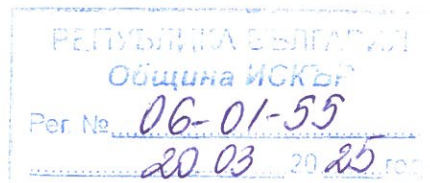 РЕПУБЛИКА БЪЛГАРИЯ
Община ИСКЪР
Рег. № 06-01-55
20.03 2025 год